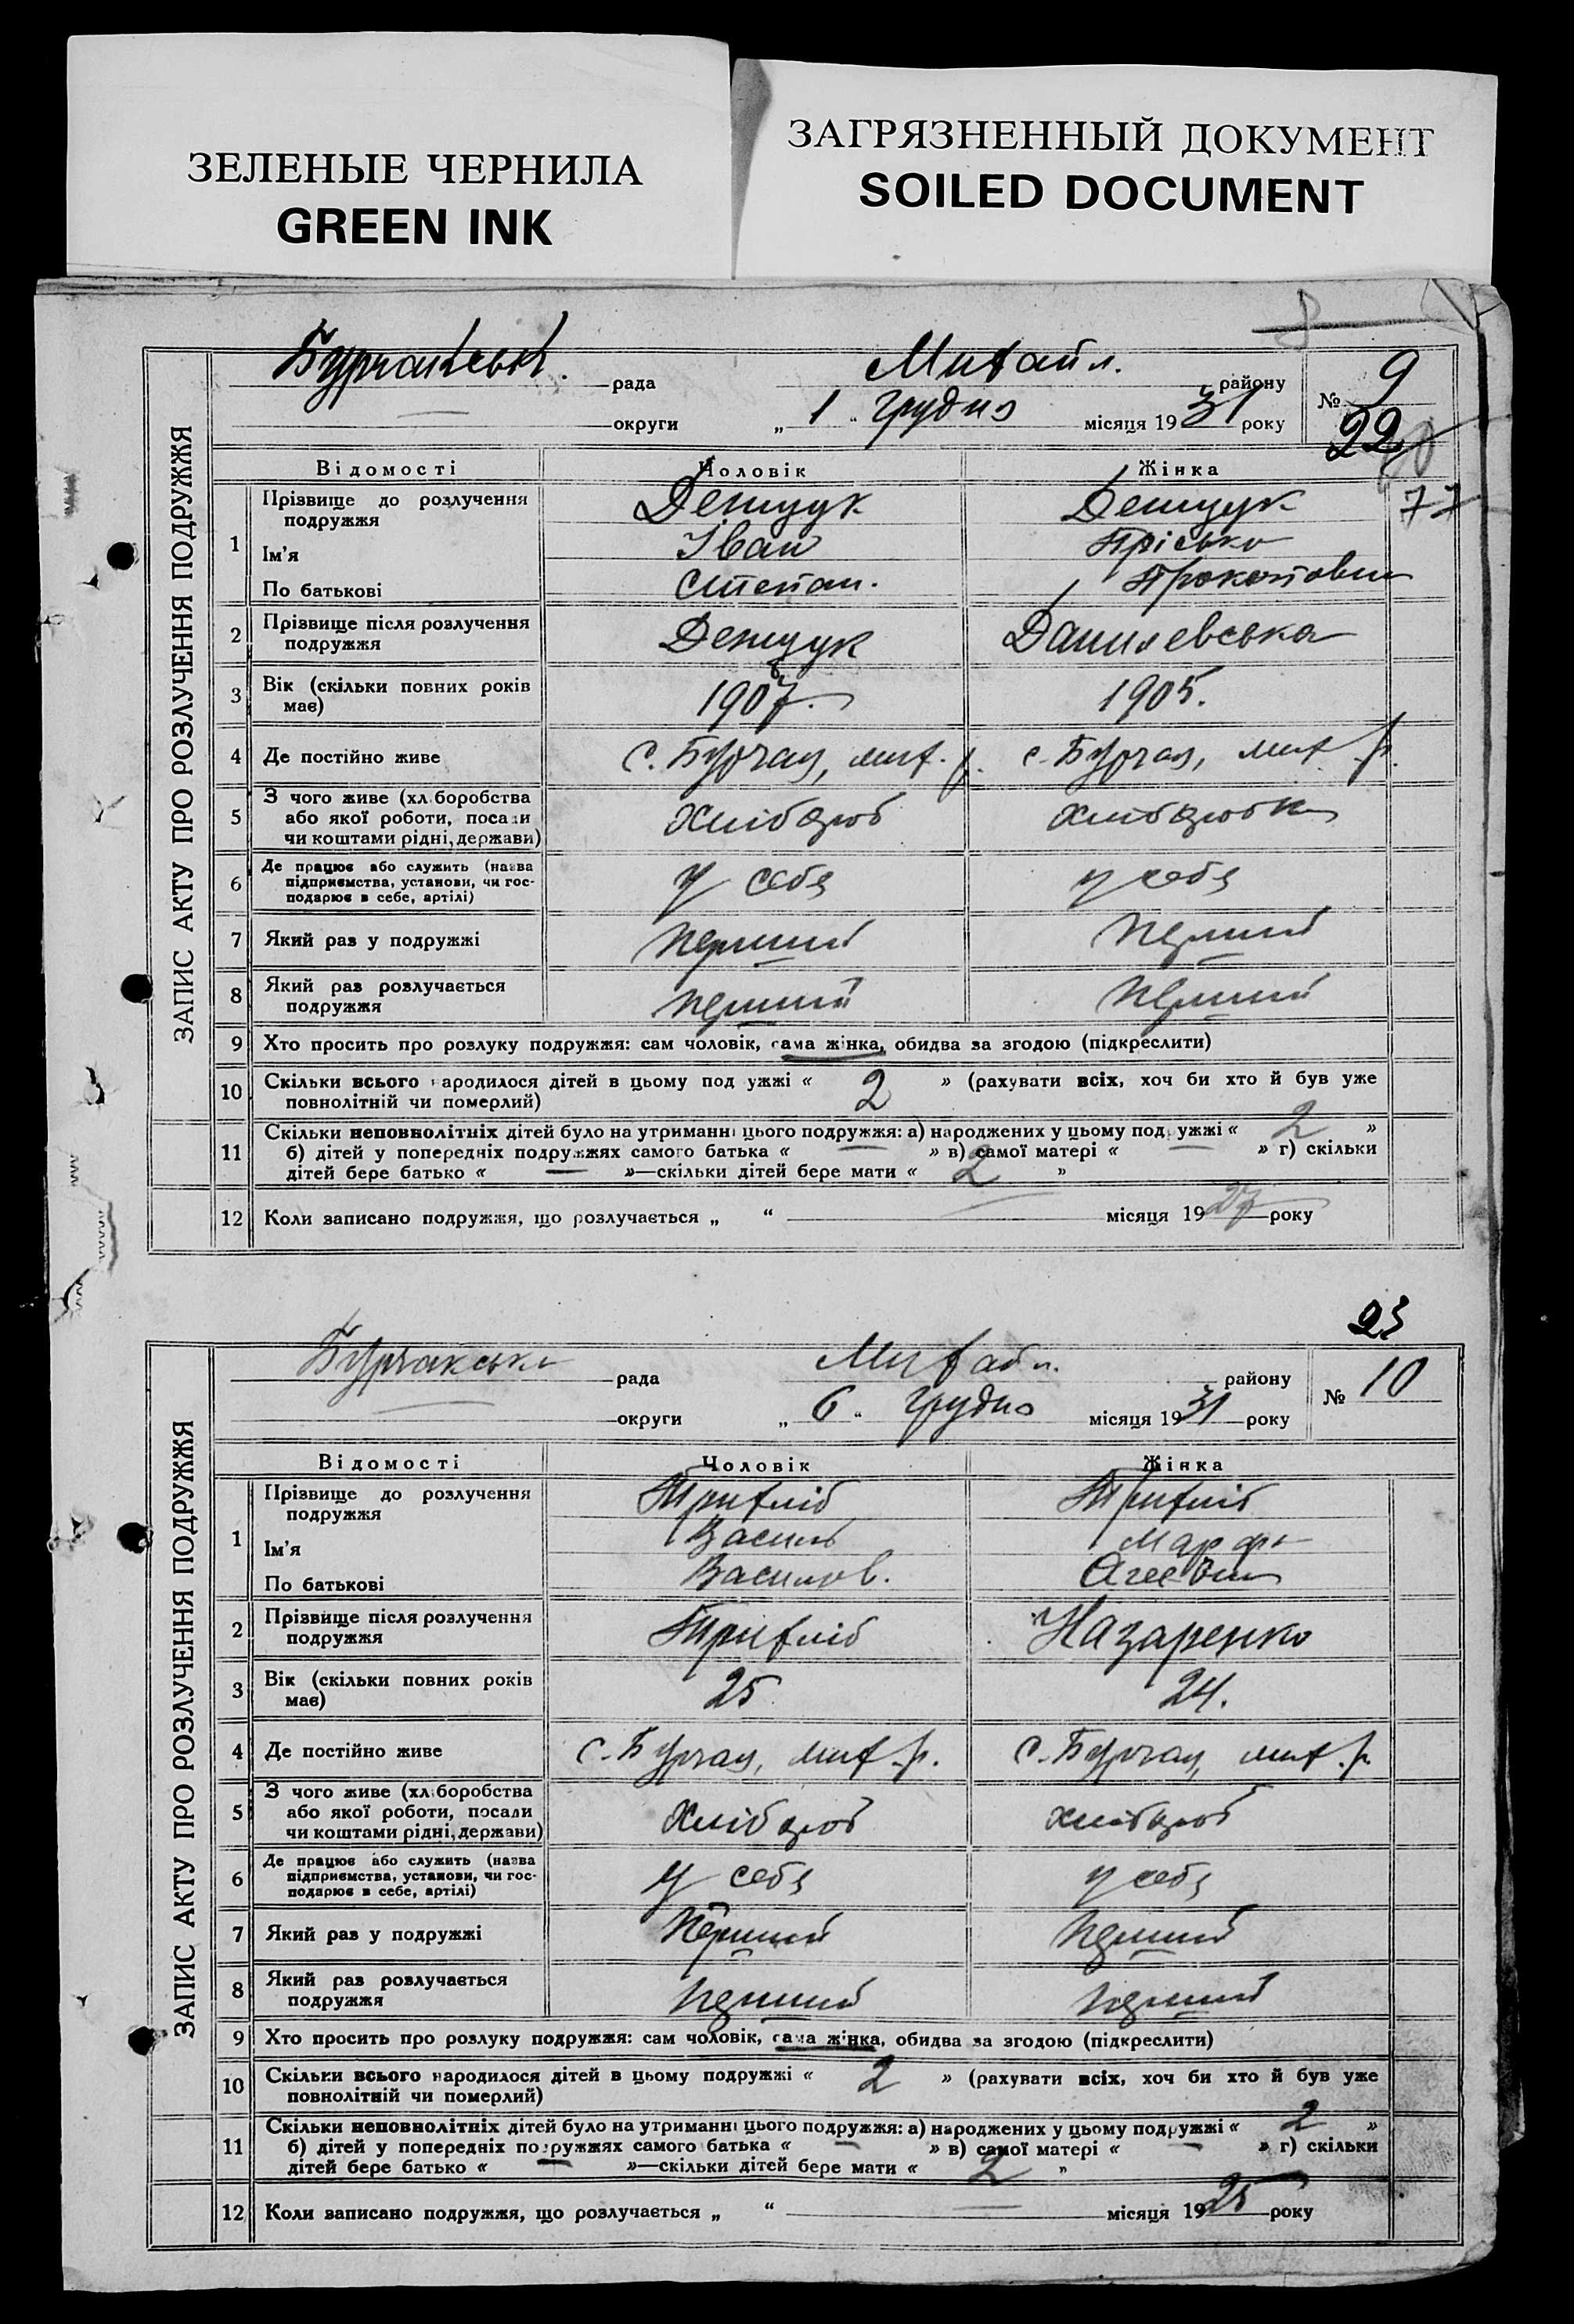 ЗЕЛЕНЫЕ ЧЕРНИЛА
GREEN INK
ЗАГРЯЗНЕННЫЙ ДОКУМЕНТ
SOILED DOCUMENT
ЗАПИС АКТУ ПРО РОЗЛУЧЕННЯ ПОДРУЖЖЯ
рада Михайл. району № 9
округи „ 1 “ грудня місяця 1931 року
22
77
Відомості Чоловік Жінка
1 Прізвище до розлучення подружжя Дещук Дещук
Ім'я Іван Пріська
По батькові Степан. Прокоповна
2 Прізвище після розлучення подружжя Дещук Данилевська
3 Вік (скільки повних років має) 1907. 1905.
4 Де постійно живе с. Бурчак, мих. р. с. Бурчак, мих. р.
5 З чого живе (хліборобства або якої роботи, посади чи коштами рідні, держави) Хлібороб хліборобка
6 Де працює або служить (назва підприємства, установи, чи господарює в себе, артілі) у себе у себе
7 Який раз у подружжі перший перший
8 Який раз розлучається подружжя перший перший
9 Хто просить про розлуку подружжя: сам чоловік, сама жінка, обидва за згодою (підкреслити)
10 Скільки всього народилося дітей в цьому подружжі « 2 » (рахувати всіх, хоч би хто й був уже
повнолітній чи померлий)
11 Скільки неповнолітніх дітей було на утриманні цього подружжя: а) народжених у цьому подружжі « 2 »
б) дітей у попередніх подружжях самого батька « — » в) самої матері « — » г) скільки
дітей бере батько « — »—скільки дітей бере мати « 2 »
12 Коли записано подружжя, що розлучається „ “ місяця 1927 року
23
ЗАПИС АКТУ ПРО РОЗЛУЧЕННЯ ПОДРУЖЖЯ
Бурчакська рада Михайл. району № 10
округи „ 6 “ грудня місяця 1931 року
Відомості Чоловік Жінка
1 Прізвище до розлучення подружжя Трихліб Трихліб
Ім'я Василь Марфа
По батькові Васильов. Агеевна
2 Прізвище після розлучення подружжя Трихліб Назаренко
3 Вік (скільки повних років має) 25 24.
4 Де постійно живе с. Бурчак, мих. р. с. Бурчак, мих. р.
5 З чого живе (хліборобства або якої роботи, посади чи коштами рідні, держави) Хлібороб хлібороб
6 Де працює або служить (назва підприємства, установи, чи господарює в себе, артілі) у себе у себе
7 Який раз у подружжі перший перший
8 Який раз розлучається подружжя перший перший
9 Хто просить про розлуку подружжя: сам чоловік, сама жінка, обидва за згодою (підкреслити)
10 Скільки всього народилося дітей в цьому подружжі « 2 » (рахувати всіх, хоч би хто й був уже
повнолітній чи померлий)
11 Скільки неповнолітніх дітей було на утриманні цього подружжя: а) народжених у цьому подружжі « 2 »
б) дітей у попередніх подружжях самого батька « — » в) самої матері « — » г) скільки
дітей бере батько « — »—скільки дітей бере мати « 2 »
12 Коли записано подружжя, що розлучається „ “ — місяця 1925 року